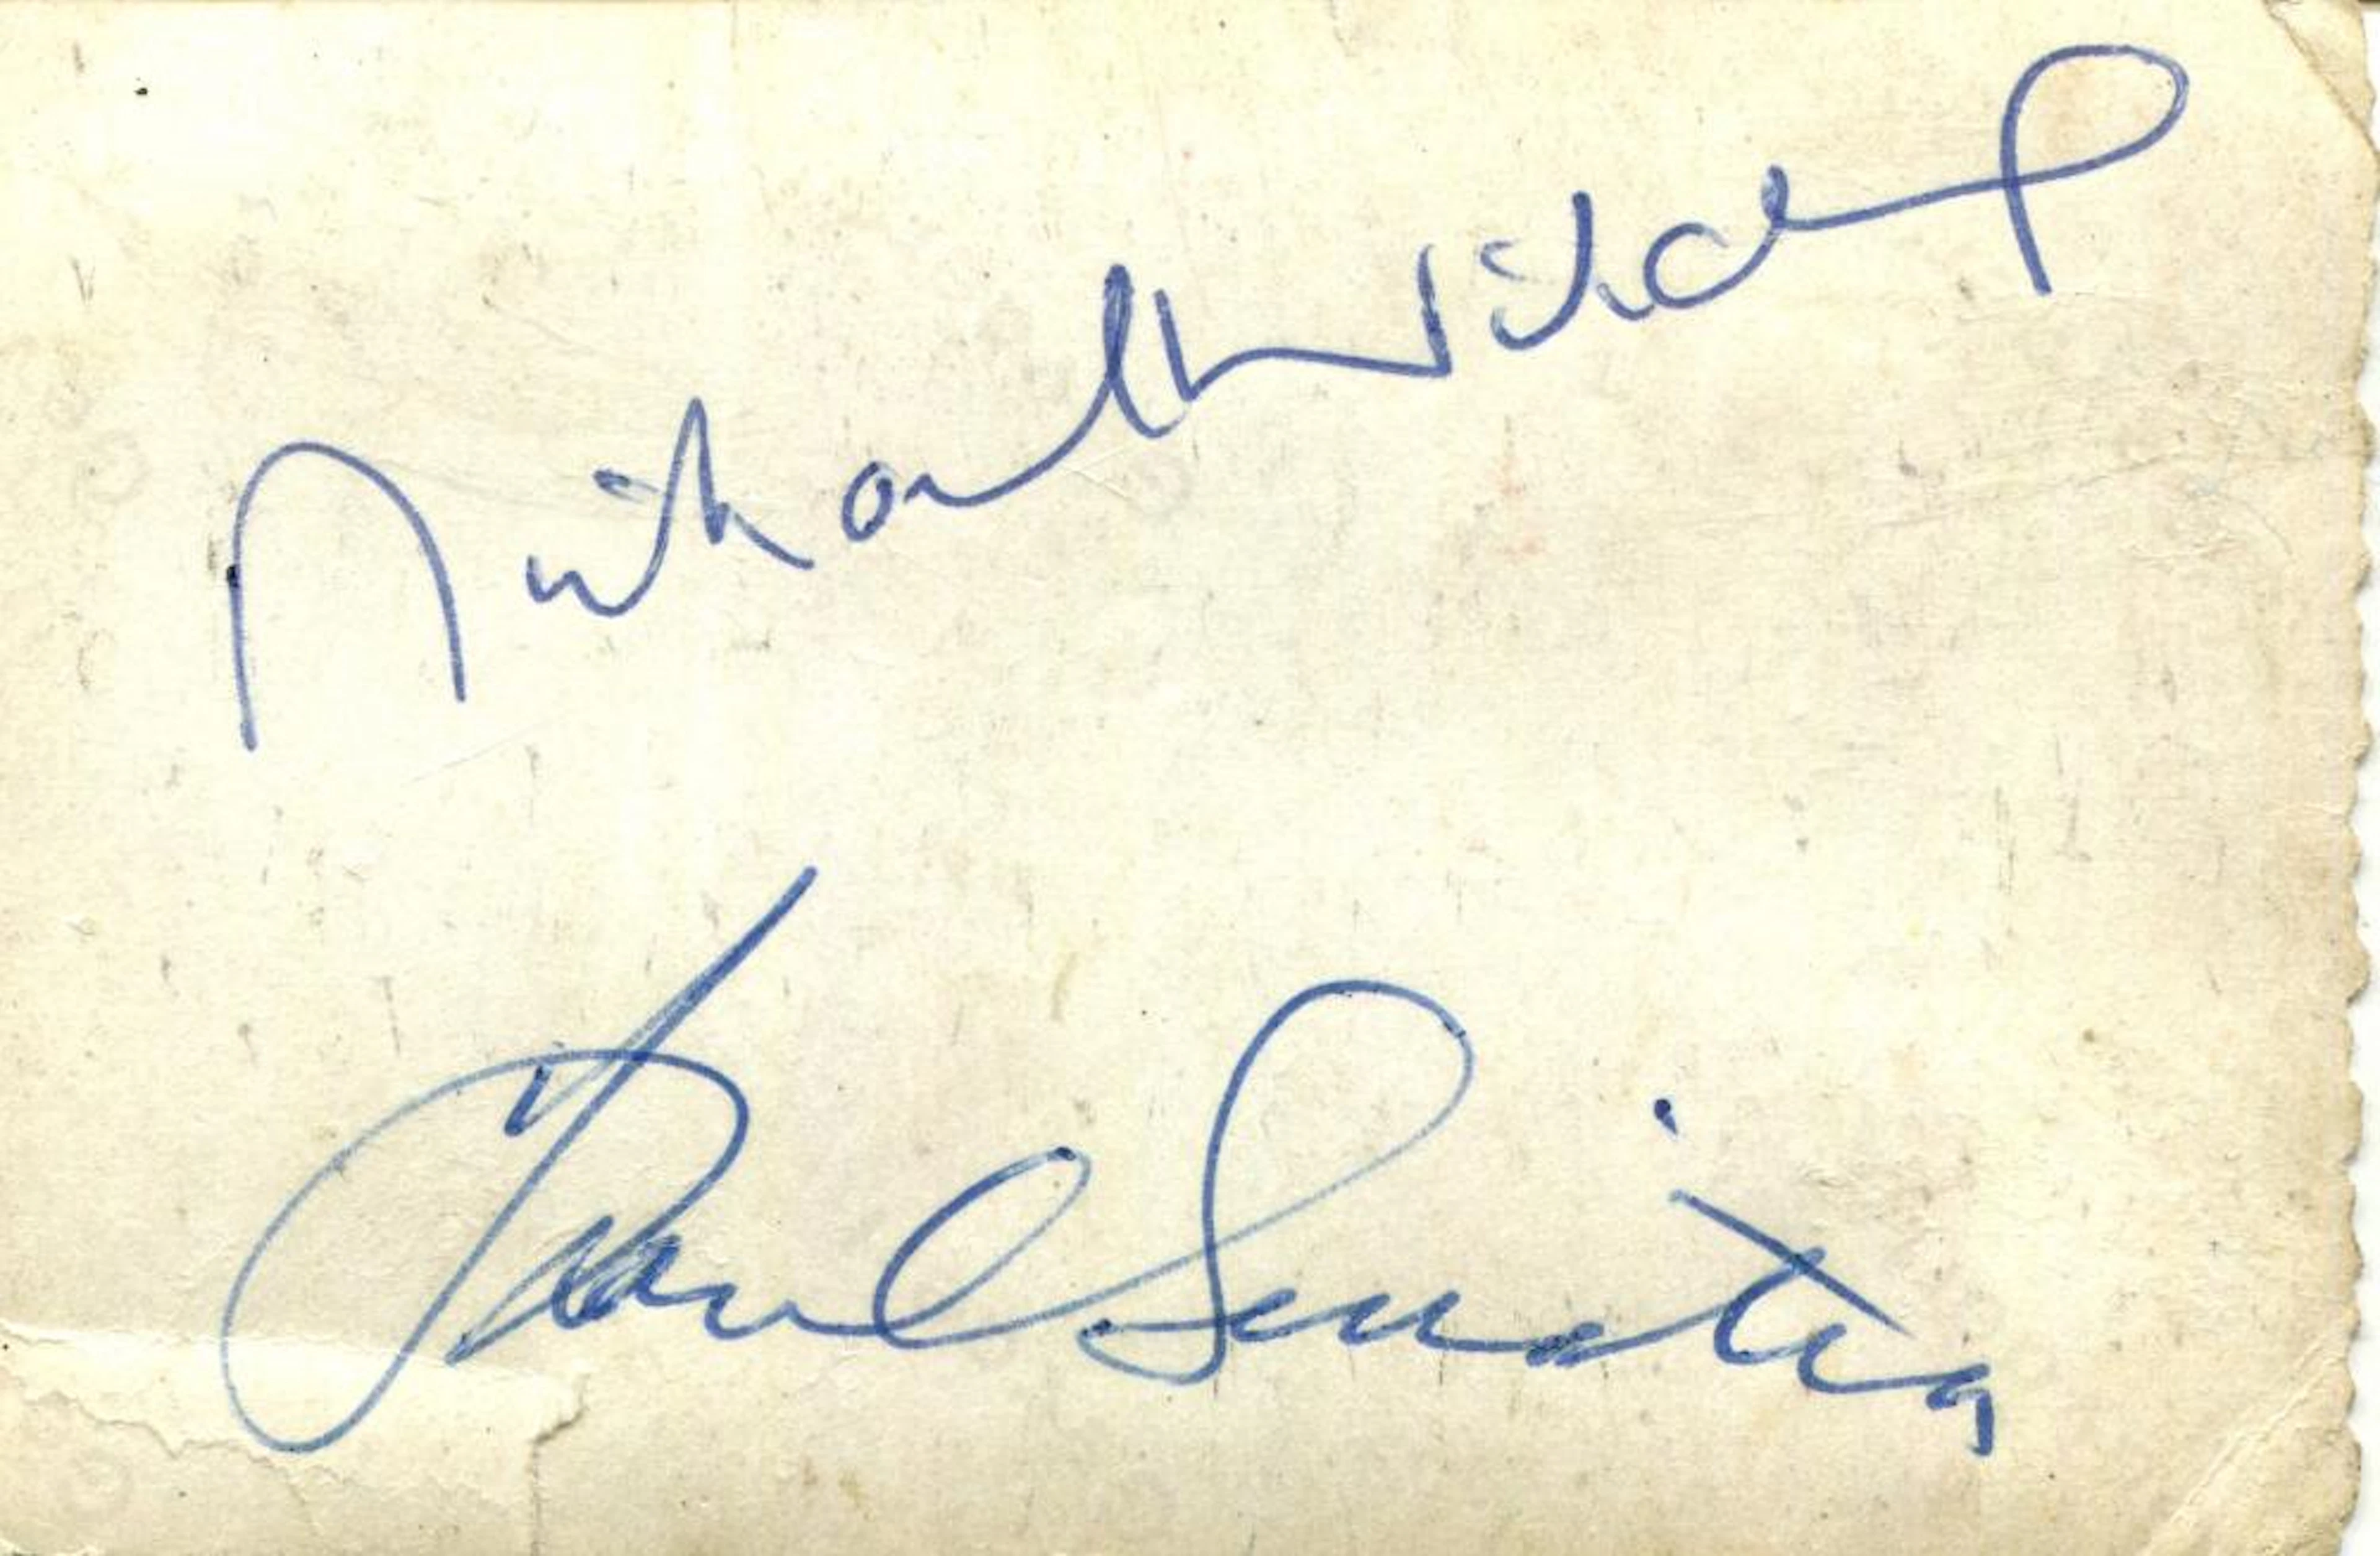 Michael Wilding
Frank Sinatra